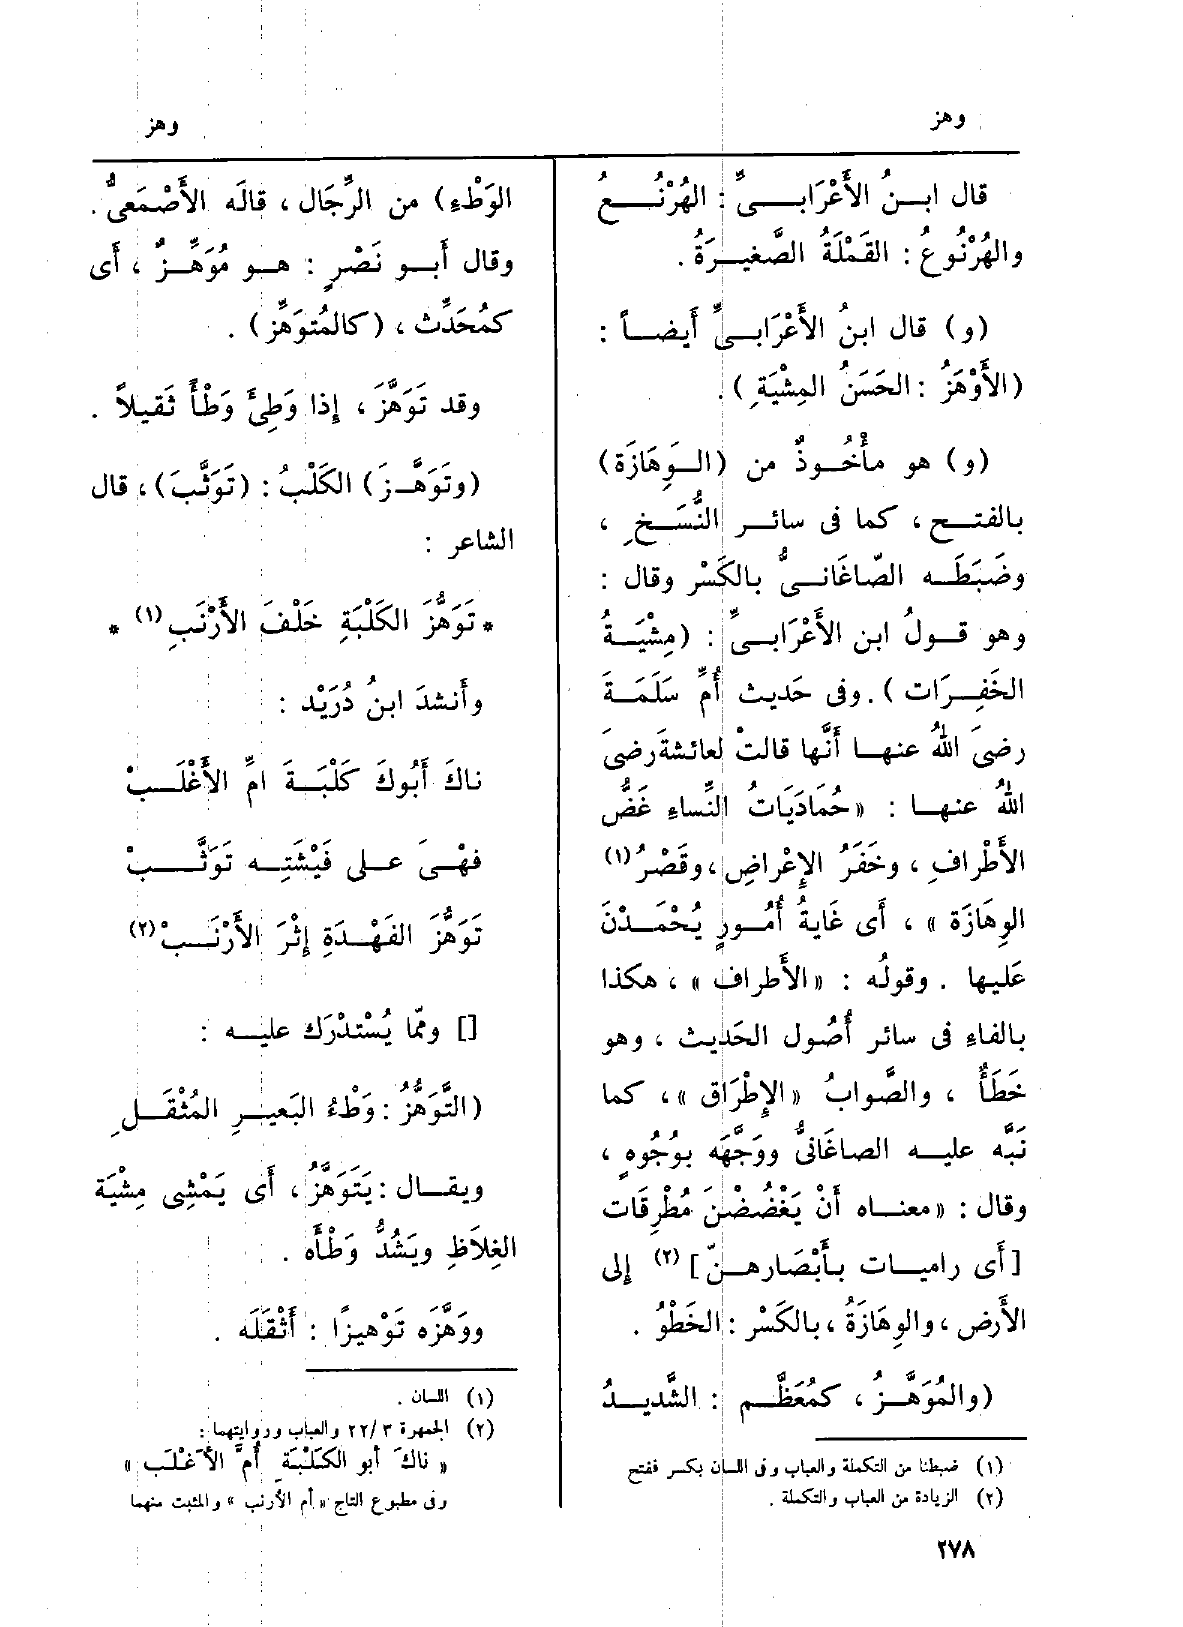 وهز
وهز
قال ابنُ الأَعْرَابىِّ : الهُرْنُعُ
والهُرْنُوعُ : القَمْلَةُ الصَّغيرَةُ .
(و) قال ابنُ الأَعْرَابىِّ أَيضاً :
(الأَوْهَزُ : الحَسَنُ المِشْيَةِ ) .
(و) هو مأْخُوذٌ من (الوَهَازَة)
بالفتح ، كما فى سائر النُّسَخِ ،
وضَبَطَه الصّاغَانىُّ بالكَسْر وقال :
وهو قولُ ابن الأَعْرَابىِّ : (مِشْيَةُ
الخَفِرَات ) . وفى حَديث أُمِّ سَلَمَةَ
رضىَ اللهُ عنها أَنَّها قالتْ لعائشةَ رضىَ
اللهُ عنها : « حُمَادَيَاتُ النِّساءِ غَضُّ
الأَطْرافِ ، وخَفَرُ الإِعْراضِ ، وقَصْرُ (١)
الوِهَازَة » ، أَى غَايَةُ أُمُورٍ يُحْمَدْنَ
عَليها . وقولُه : « الأَطراف » ، هكذا
بالفاءِ فى سائر أُصُول الحَديث ، وهو
خَطَأٌ ، والصَّوابُ « الإِطْرَاق » ، كما
نَبَّه عليه الصاغَانىُّ ووَجَّهَه بوُجُوهٍ ،
وقال : « معناه أَنْ يَغْضُضْنَ مُطْرِقَات
[أَى راميات بأَبْصَارهنّ] (٢) إلى
الأَرض ، والوِهَازَةُ ، بالكَسْر : الخَطْوُ .
(والمُوَهَّزُ ، كمُعَظَّم : الشَّديدُ
(١) ضبطنا من التكملة والعباب وفى اللسان بكسر ففتح
(٢) الزيادة من العباب والتكملة .
الوَطْءِ) من الرِّجَال ، قالَه الأَصْمَعىُّ .
وقال أَبو نَصْرٍ : هو مُوَهِّزٌ ، أَى
كمُحَدِّث ، (كالمُتوَهِّز) .
وقد تَوَهَّزَ ، إِذا وَطِئَ وَطْأً ثَقيلاً .
(وتَوَهَّزَ) الكَلْبُ : (تَوَثَّبَ) ، قال
الشاعر :
* تَوَهُّزَ الكَلْبَةِ خَلْفَ الأَرْنَبِ (١) *
وأَنشدَ ابنُ دُرَيْد :
ناكَ أَبُوكَ كَلْبَةَ امِّ الأَغْلَبْ
فهْىَ على فَيْشَتِه تَوَثَّبْ
تَوَهُّزَ الفَهْدَةِ إِثْرَ الأَرْنَبْ (٢)
[] وممّا يُسْتدْرَك عليه :
(التَّوَهُّزُ : وَطْءُ البَعيرِ المُثْقَلِ
ويقال : يَتَوَهَّزُ ، أَى يَمْشِى مِشْيَةَ
الغِلاَظِ ويَشُدُّ وَطْأَه .
ووَهَّزَه تَوْهيزًا : أَثْقَلَه .
(١) اللسان .
(٢) الجمهرة ٣ /٢٢ والعباب وروايتهما :
« ناكَ أبو الكَلْبَةِ أُمَّ الأَغْلَب »
وفى مطبوع التاج « أم الأرنب » والمثبت منهما
٢٧٨